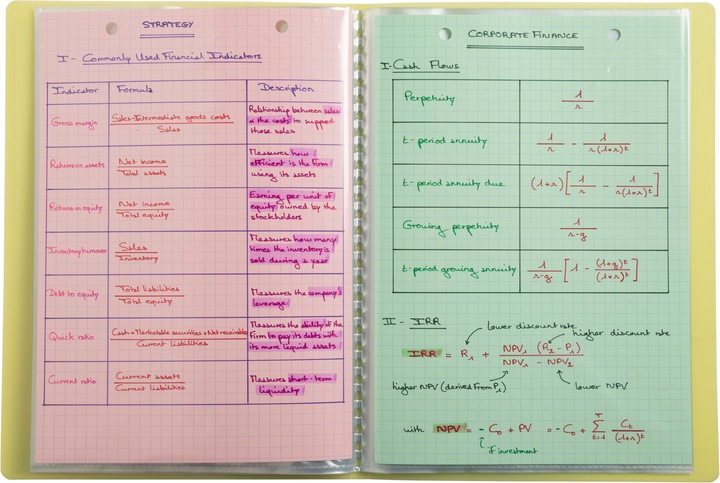 STRATEGY
I - Commonly Used Financial Indicators
Indicator | Formula | Description
Gross margin | Sales-Intermediate goods costs / Sales | Relationship between sales
& the costs to support
those sales
Return on assets | Net income / Total assets | Measures how
efficient is the Firm
using its assets
Return on equity | Net income / Total equity | Earning per unit of
equity owned by the
stockholders
Inventory turnover | Sales / Inventory | Measures how many
times the inventory is
sold during a year
Debt to equity | Total liabilities / Total equity | Measures the company's
leverage
Quick ratio | Cash + Marketable securities + Net receivables / Current liabilities | Measures the ability of the
Firm to pay its debts with
its more liquid assets
Current ratio | Current assets / Current liabilities | Measures short-term
liquidity
CORPORATE FINANCE
I- Cash Flows
Perpetuity | 1/r
t-period annuity | 1/r - 1/r(1+r)^t
t-period annuity due | (1+r) [1/r - 1/r(1+r)^t]
Growing perpetuity | 1/r-g
t-period growing annuity | 1/r-g [1 - (1+g)^t/(1+r)^t]
II - IRR
lower discount rate
higher discount rate
IRR = R₁ + NPV₁ (R₂ - P₁) / NPV₁ - NPV₂
higher NPV (derived from P₁)
lower NPV
with NPV = - C₀ + PV = - C₀ + Σ T t=1 Ct/(1+r)^t
if investment